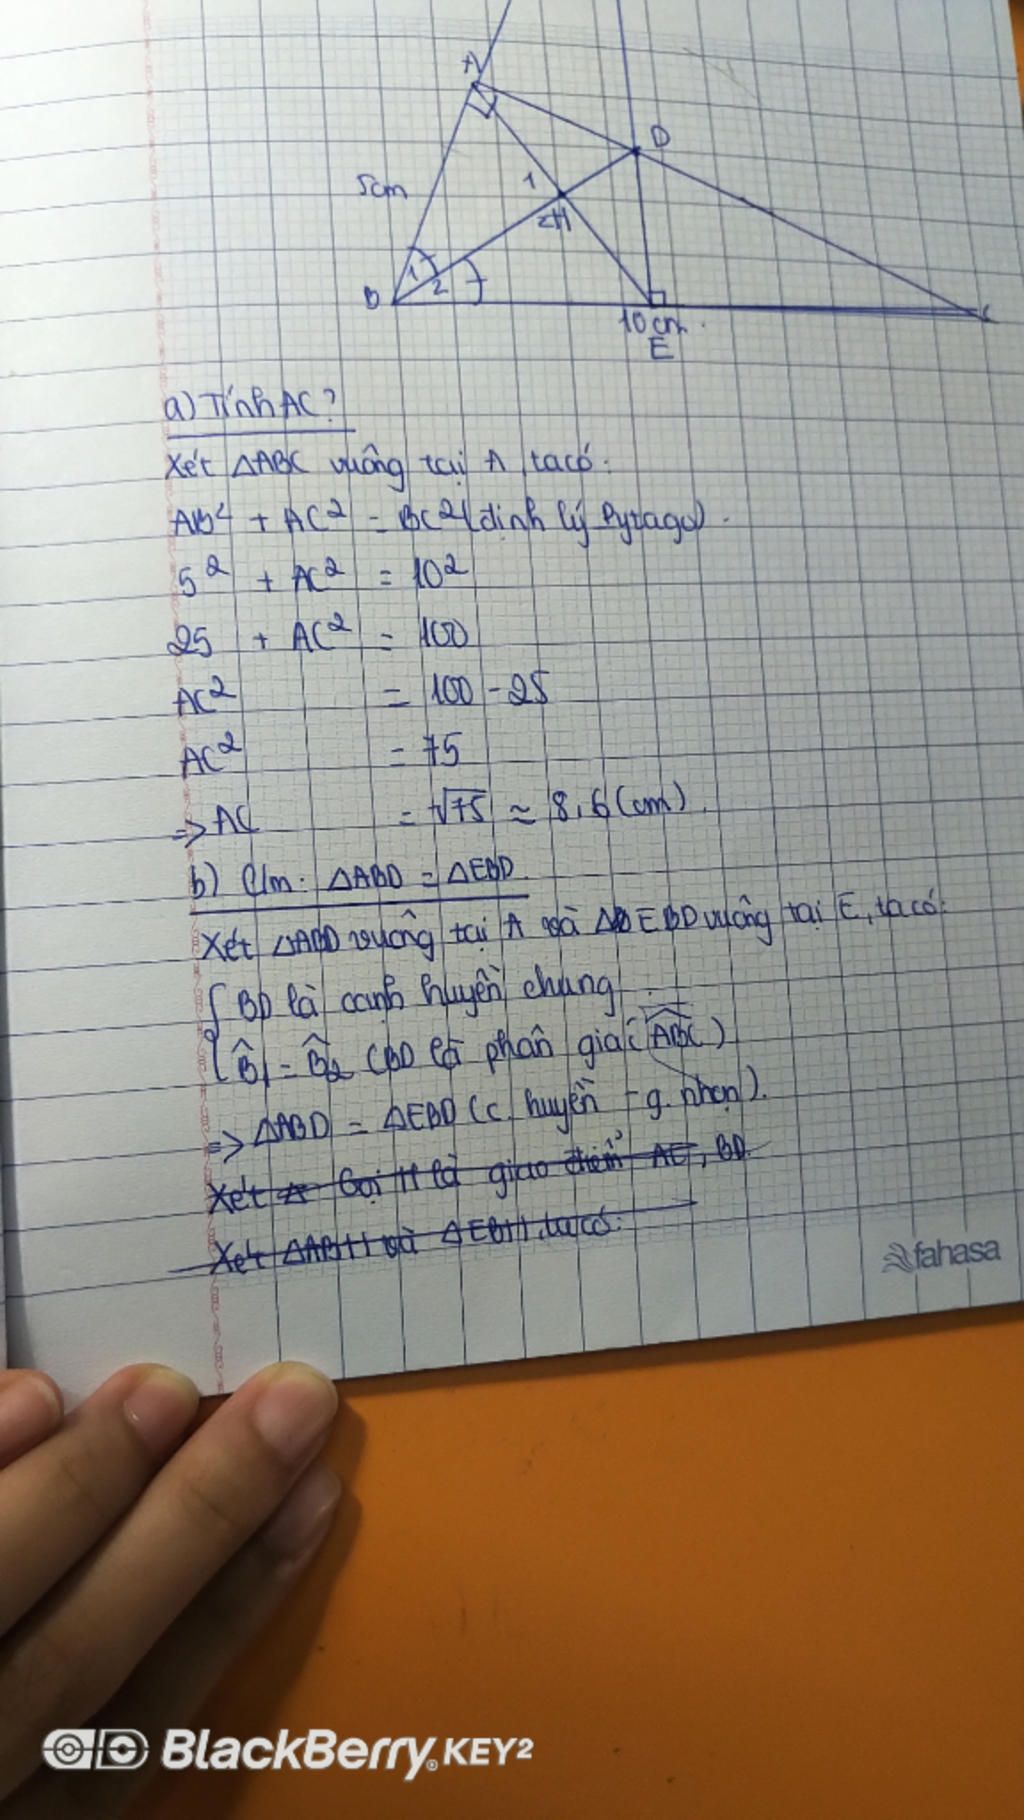 A
D
5cm
1
2 H
B
1
2
10 cm.
C
E
a) Tính AC?
Xét △ABC vuông tại A, ta có:
AB² + AC² = BC² (định lý Pytago).
5² + AC² = 10²
25 + AC² = 100
AC² = 100 - 25
AC² = 75
=> AC = √75 ≈ 8,6 (cm).
b) C/m: △ABD = △EBD
Xét △ABD vuông tại A và △EBD vuông tại E, ta có:
{ BD là cạnh huyền chung
{ B̂1 = B̂2 (BD là phân giác ABC)
=> △ABD = △EBD (c. huyền - g. nhọn).
Xét △ Gọi H là giao điểm AE, BD
Xét △ABH và △EBH, ta có:
fahasa
BlackBerry KEY²